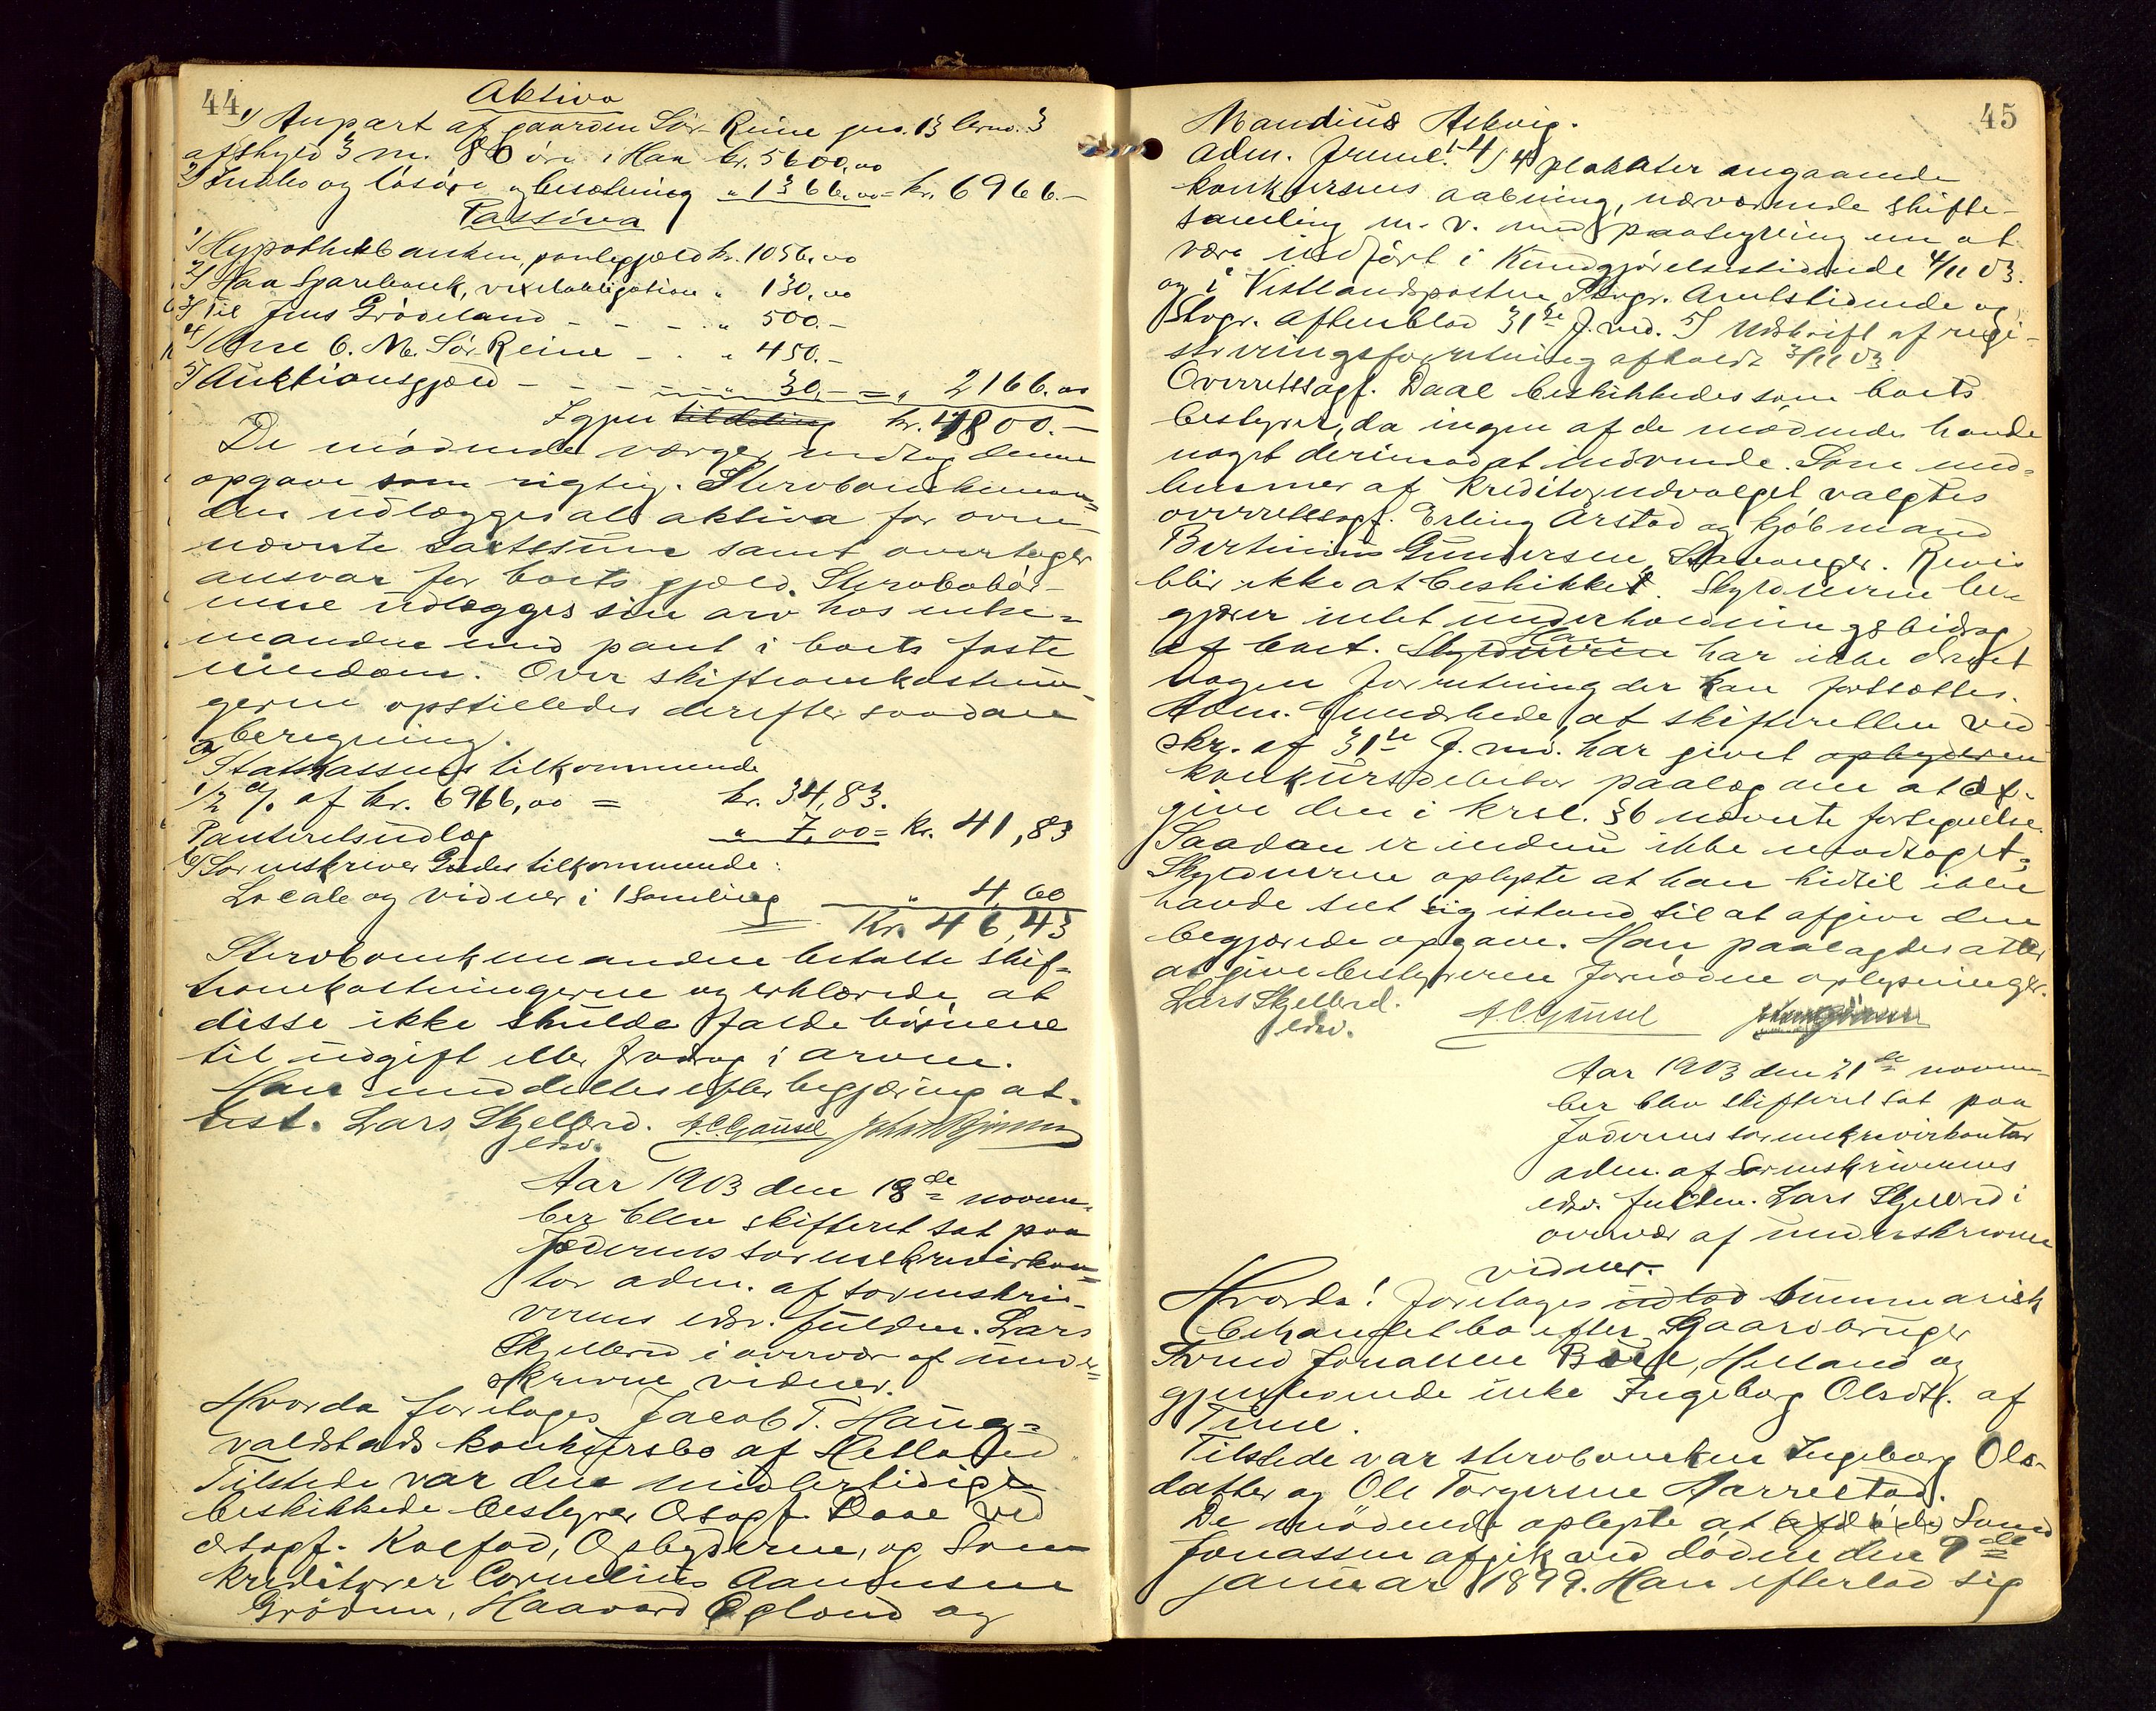 44
Aktiva
1/ Anpart af gaarden Sör-Reine gno. 13 brno. 3
afskyld 3 m. 80 öre i Haa kr. 5600,00
2/ Indbo og lösöre og besætning " 1366,00 = kr. 6966.-
Passiva
1/ Hypothekbanken, pantegjæld kr. 1056,00
2/ Haa Sparebank, vexelobligation " 130,00
3/ Til Jens Grödeland - - - - " 500.-
4/ Ane C. M. Sör Reine - - " 450.-
5/ Auktionsgjæld - - - - " 30,- = " 2166.00
Igjen til deling kr. 4800.-
De mödende værger vedtog denne
opgave som rigtig. Sterboenkeman-
den udlægges al aktiva for oven-
nævnte takstsum samt overtager
ansvar for boets gjæld. Sterbobör-
nene udlægges sin arv hos enke-
manden med pant i boets faste
eiendom. Over skifteomkostnin-
gerne opstilledes derefter saadan
beregning.
a/ Statskassens tilkommende
1/2 % af kr. 6966,00 = kr. 34,83.
Panteretsudlæg " 7,00 = kr. 41,83
b/ Sorenskriver Gjedes tilkommende:
Locale og vidner i 1 samling " 4,60
Kr. 46,43
Sterboenkemanden betalte skif-
teomkostningerne og erklærede, at
disse ikke skulde falde börnene
til udgift eller fradrag i arven.
Han meddeltes efter begjæring at-
test. Lars Skjelbred. A. C. Gausel
edsv.
Aar 1903 den 18de novem-
ber blev skifteret sat paa
Jæderens sorenskriverkon-
tor adm. af sorenskri-
verens edsv. fuldm. Lars
Skjelbred i overvær af under-
skrevne vidner.
Hvorda foretoges Jacob T. Haug-
valdstads konkursbo af Hetland.
Tilstede var den midlertidigt
beskikkede bestyrer Osagf. Daae ved
osagf. Koefod, Opbyderen, og som
kreditorer Cornelius Aanensen
Grödem, Haavard Egland og
45
Mandius Askvig.
Adm. freml. 1-4/ 4 plakater angaaende
konkursens aabning, nærværende skifte-
samling m. v. med paategning om at
være indfört i Kundgjörelsestidende 4/11 03.
og i Vestlandsposten, Stvgr. Amtstidende og
Stvgr. Aftenblad 31te f. md. 5/ Udskrift af regi-
streringsforretning afholdt 3/11 03.
Overretssagf. Daae beskikkedes som boets
bestyrer, da ingen af de mødende havde
noget derimod at indvende. Som med-
lemmer af kreditorudvalget valgtes
overretssagf. Erling Årstad og kjöbmand
Bertinius Gundersen, Stavanger. Revis
blir ikke at beskikket. Skyldneren be-
gjærer intet underholdningsbidrag
af boet. Skyldneren Han har ikke drevet
nogen forretning der kan fortsættes.
Adm. bemærkede, at skifteretten ved
skr. af 31te f. md. har givet opbyderen
konkursdebitor paalæg om at af-
give den i krsl. §6 nævnte fortegnelse.
Saadan er endnu ikke modtaget.
Skyldneren oplyste at han hidtil ikke
havde seet sig istand til at afgive den
begjærede opgave. Han paalagdes atter
at give bestyreren fornødne oplysninger.
Lars Skjelbred. A. C. Gausel
edsv.
Aar 1903 den 21de novem-
ber blev skifteret sat paa
Jæderens sorenskriverkontor
adm. af Sorenskriverens
edsv. fuldm. Lars Skjelbred i
overvær af underskrevne
vidner.
Hvorda! foretoges udlod summarisk
behandlet bo efter Gaardbruger
Svend Jonassen Bore, Hetland og
gjenlevende enke Ingeborg Olsdtr. af
Time.
Tilstede var sterboenken Ingeborg Ols-
datter og Ole Torgersen Aarrestad.
De mødende oplyste at afdöde Svend
Jonassen afgik ved döden den 9de
januar 1899. Han efterlod sig